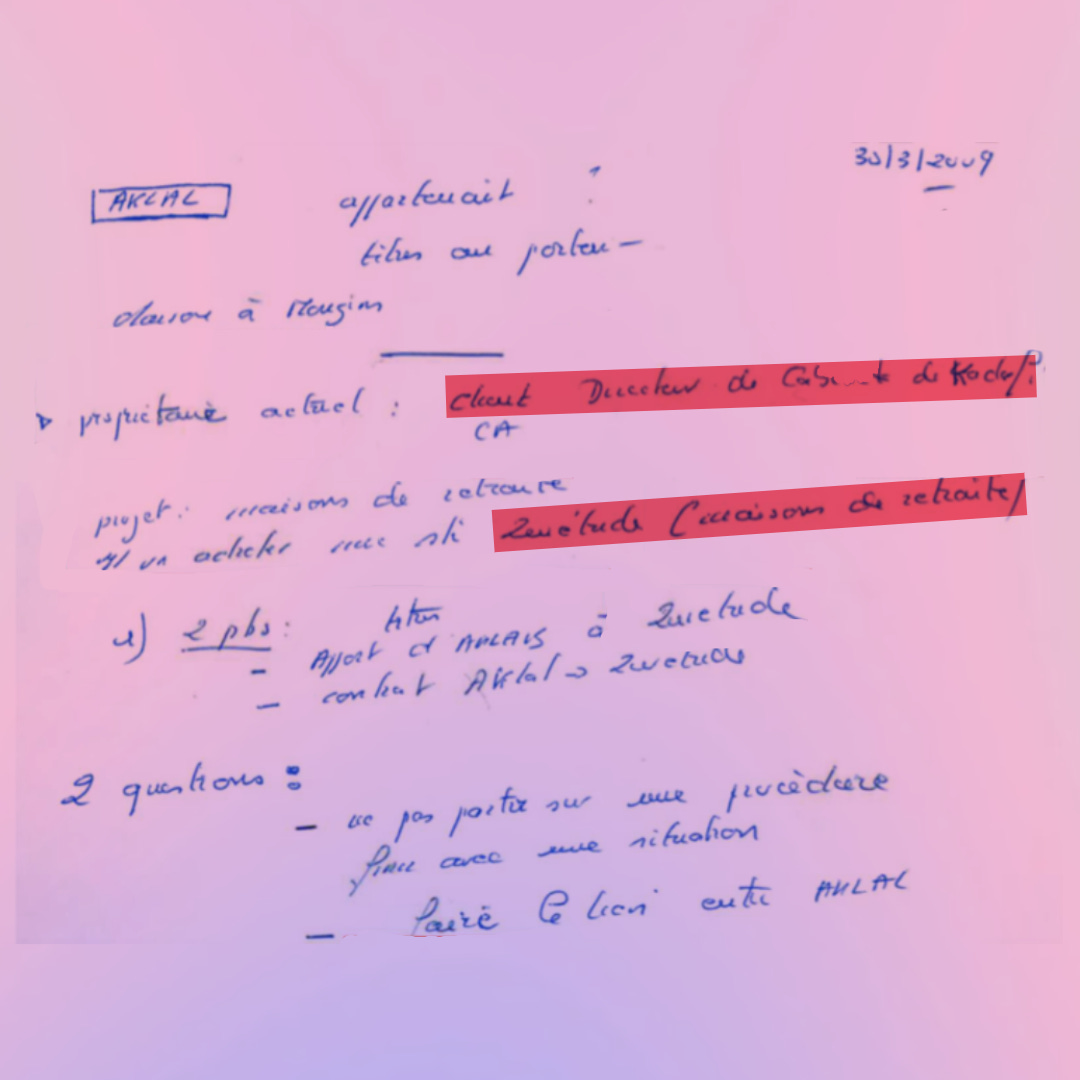 30/3/2009
AKLAL appartenait ?
titres au porteur
Maison à Mougins
propriétaire actuel : client Directeur de Cabinet de Kadaf?
CA
projet : maisons de retraite
acheter une sté Quiétude (maisons de retraite)
2 pbs :
titres
- Apport d'AKLAL à Quietude
- contrat AKlal → Quietude
2 questions :
- ne pas partir sur une procédure
avec une situation
- faire le lien entre AKLAL